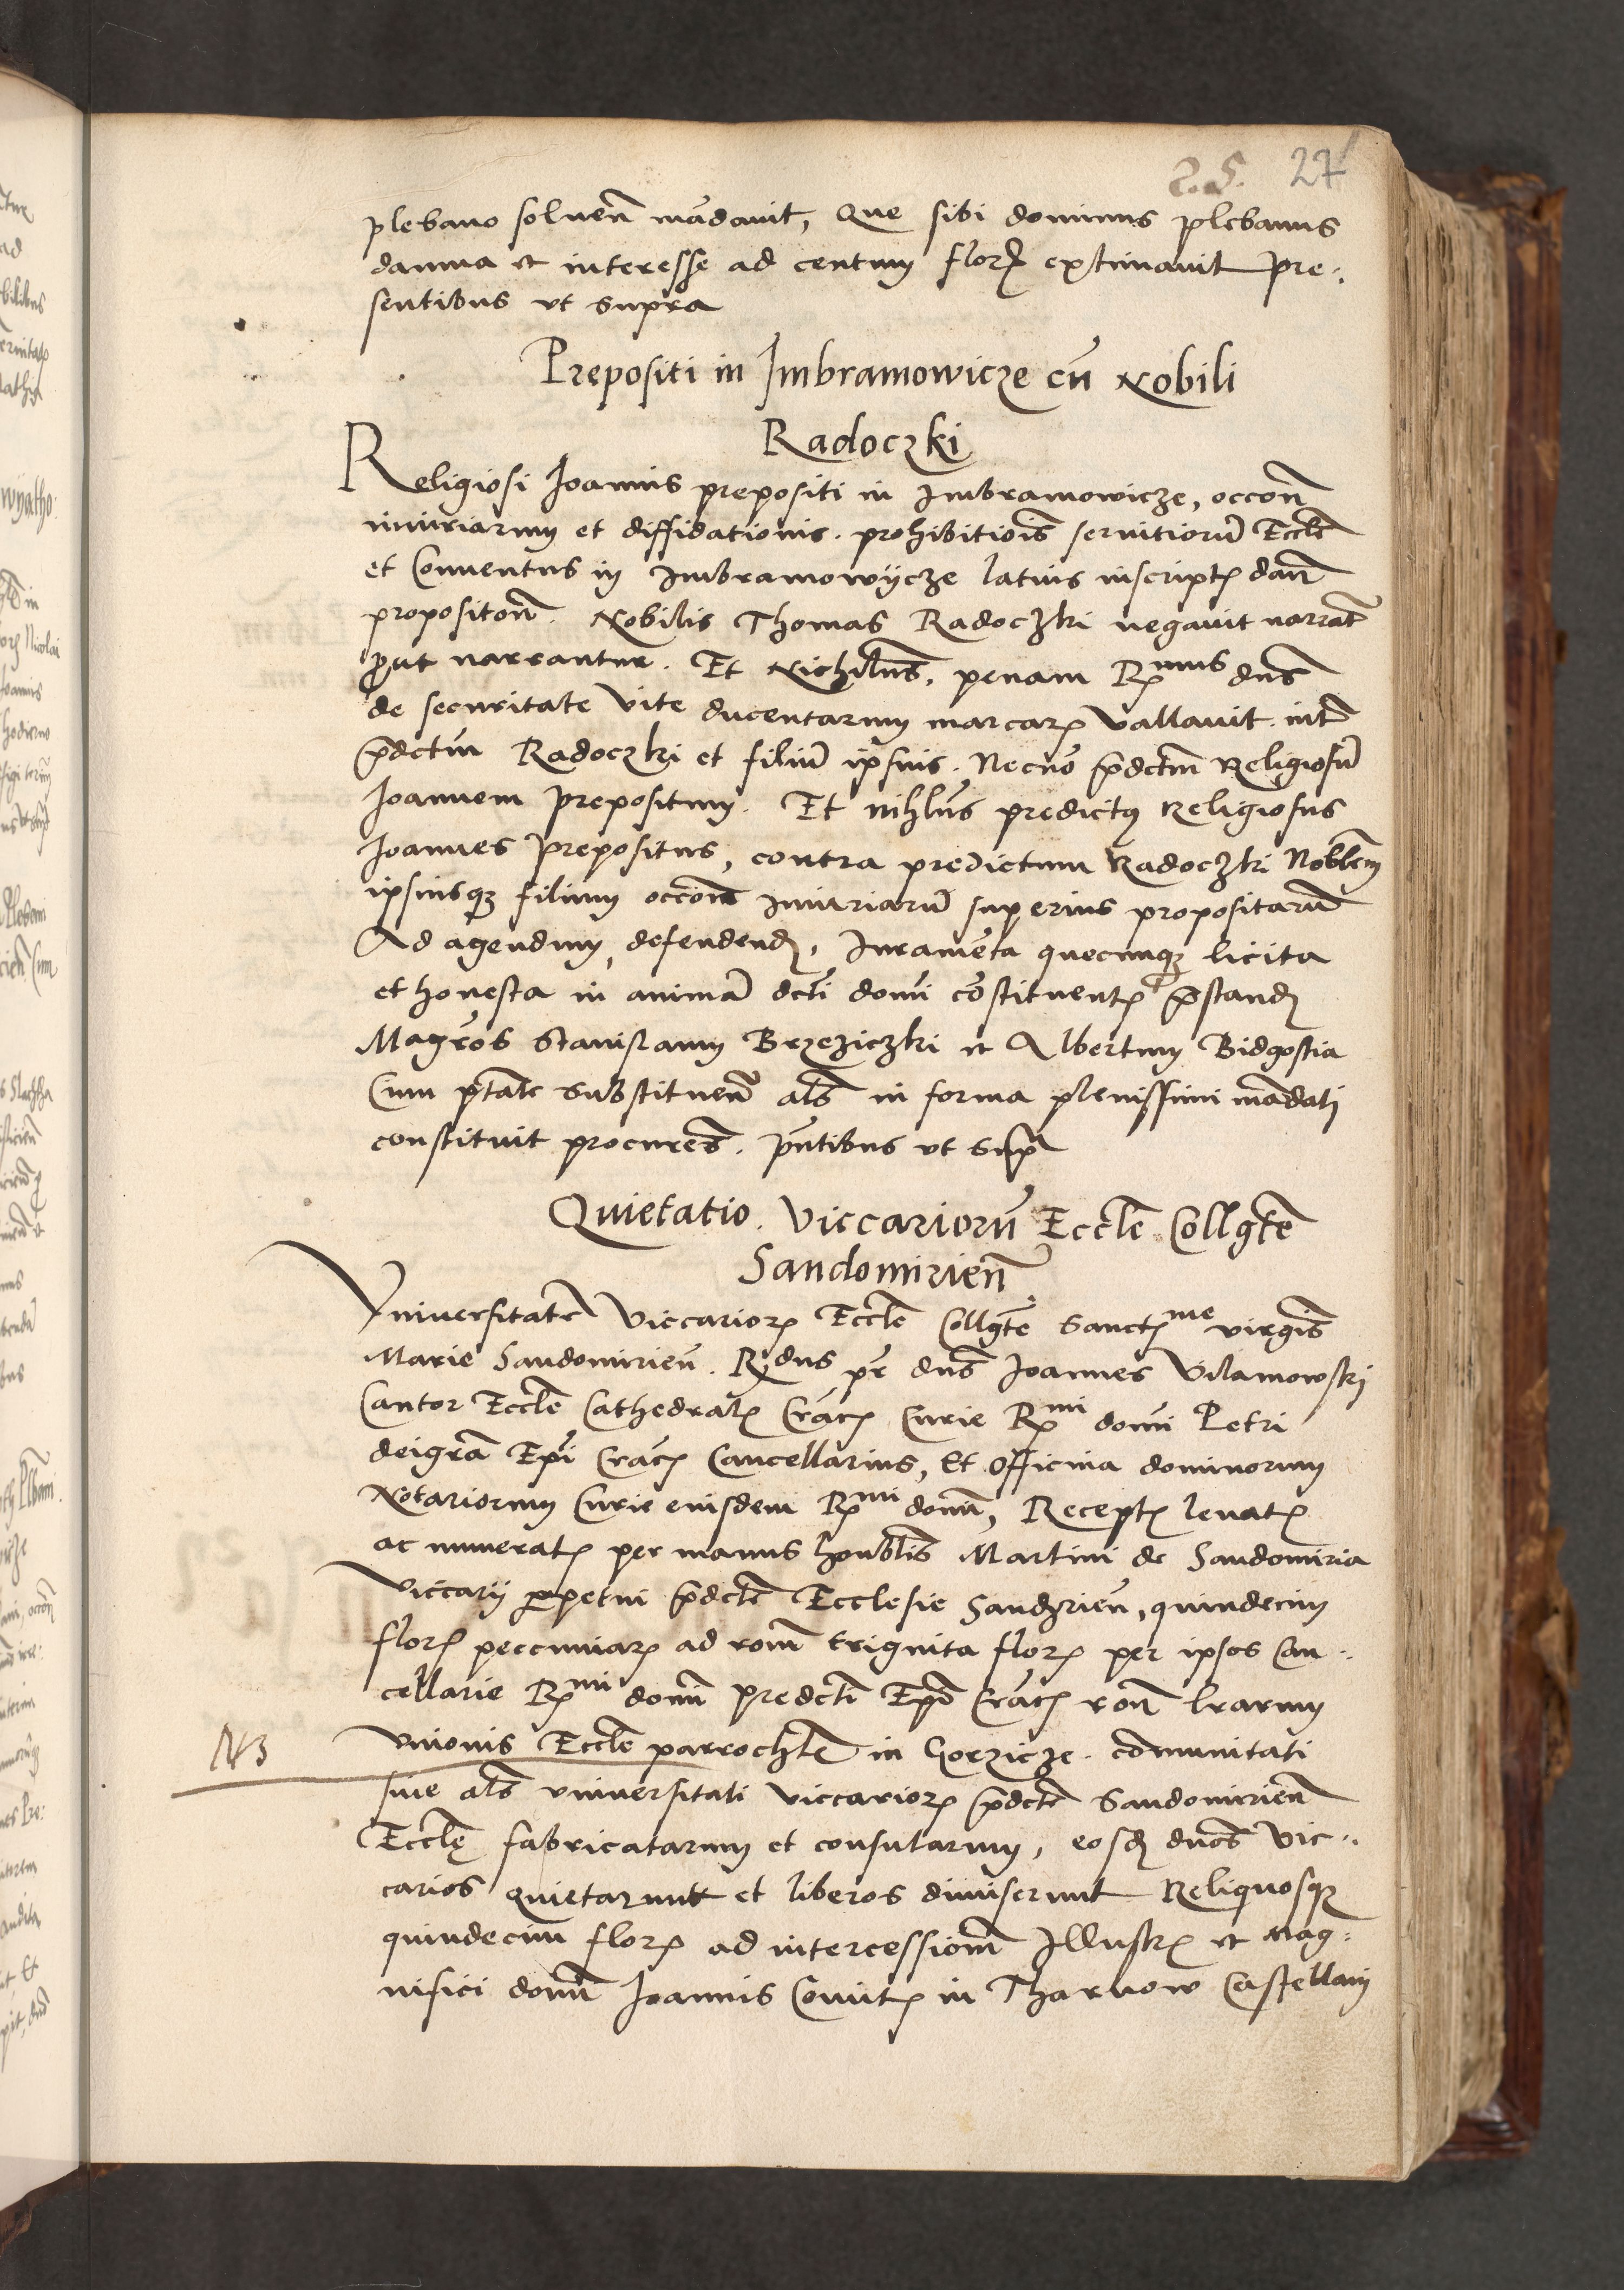 27
plebano soluen̄ mādauit, Que sibi dominus plebanus
damna et interesse ad centum florꝭ extimauit pre:
sentibus vt supra
Prepositi in Imbramowicze cū Nobili
Radoczki
Religiosi Joannis prepositi in Imbramowicze, occōn̄
iniuriarum et diffidationis. prohibitiōīs seruitiorū Eccl̄e
et Conuentus in Imbramowÿcze latius inscriptꝭ dan̄
propositōn̄. Nobilis Thomas Radoczki negauit narrat̄
put narrantur. Et Nichilūs. penam Rmus dn̄s
de securitate vite ducentarum marcarꝝ vallauit int̄
p̄dctūm Radoczki et filiū ipsius. Necnō p̄dctm̄ Religiosū
Joannem prepositum. Et nihlūs predictus Religiosus
Joannes prepositus, contra predictum Radoczki Noblem
ipsiusqꝫ filium occōn̄e iniuriarū superius propositarū
Ad agendum, defendendꝭ, Iuramēta quecunqꝫ licita
et honesta in animā dcti domī cōstituentꝭ p̄standꝭ
Magr̄os Stanislaum Brzeziczki et Albertum Bidgostia
Cum p̄tate substituen̄ al̄s in forma plenissimi mādati
constituit procures. p̄ntibus vt sup̄
Quietatio. Viccariorū Eccl̄e Collgt̄e
Sandomirien̄
Vniuersitate Viccariorꝝ Eccl̄e Collgt̄e Sanctꝭme virgīs
Marie Sandomirien̄. Rdus pr̄ dn̄s Joannes Vilamowski
Cantor Eccl̄e Cathedralꝭ Cracꝭ Curie Rmi domī Petri
deigrā Epī Cracꝭ Cancellarius, Et Officina dominorum
Notariorum Curie eiusdem Rmi domī, Receptꝭ leuatꝭ
ac numeratꝭ per manus honblīs Martini de Sandomiria
Viccarij ꝑpetui p̄dcte Ecclesie Sandrien̄, quindecim
florꝭ peccuniarꝝ ad rōm̄ triginta florꝝ per ipsos Can:
cellarie Rmi domī predcti Epī Cracꝭ rōn̄ lrarum
NB
vnionis Eccl̄e parrochl̄e in Gorzicze. cōmunitati
siue al̄s vniuersitati viccariorꝝ p̄dcte Sandomirien̄
Eccl̄e fabricatarum et consularum, eosdꝭ dn̄os vic:
carios quietarunt et liberos dimiserunt Reliquosqꝫ
quindecim florꝝ ad intercessiōm̄ Illustrꝭ et Mag:
nifici domī Joannis Comitꝭ in Tharnow Castellani